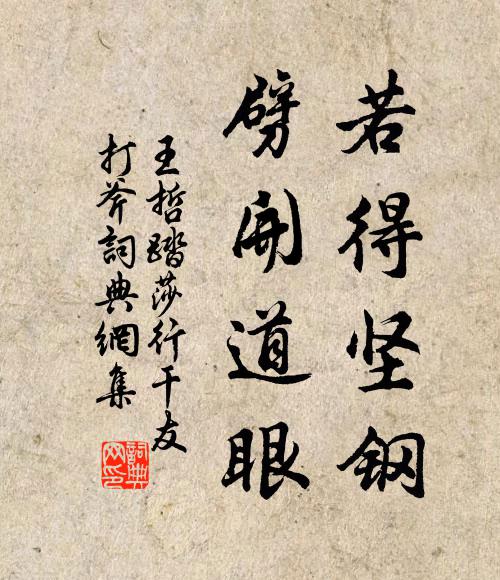 若得坚钢
劈开道眼
王哲踏莎行干友
打斧詞典網集
詞典
网印